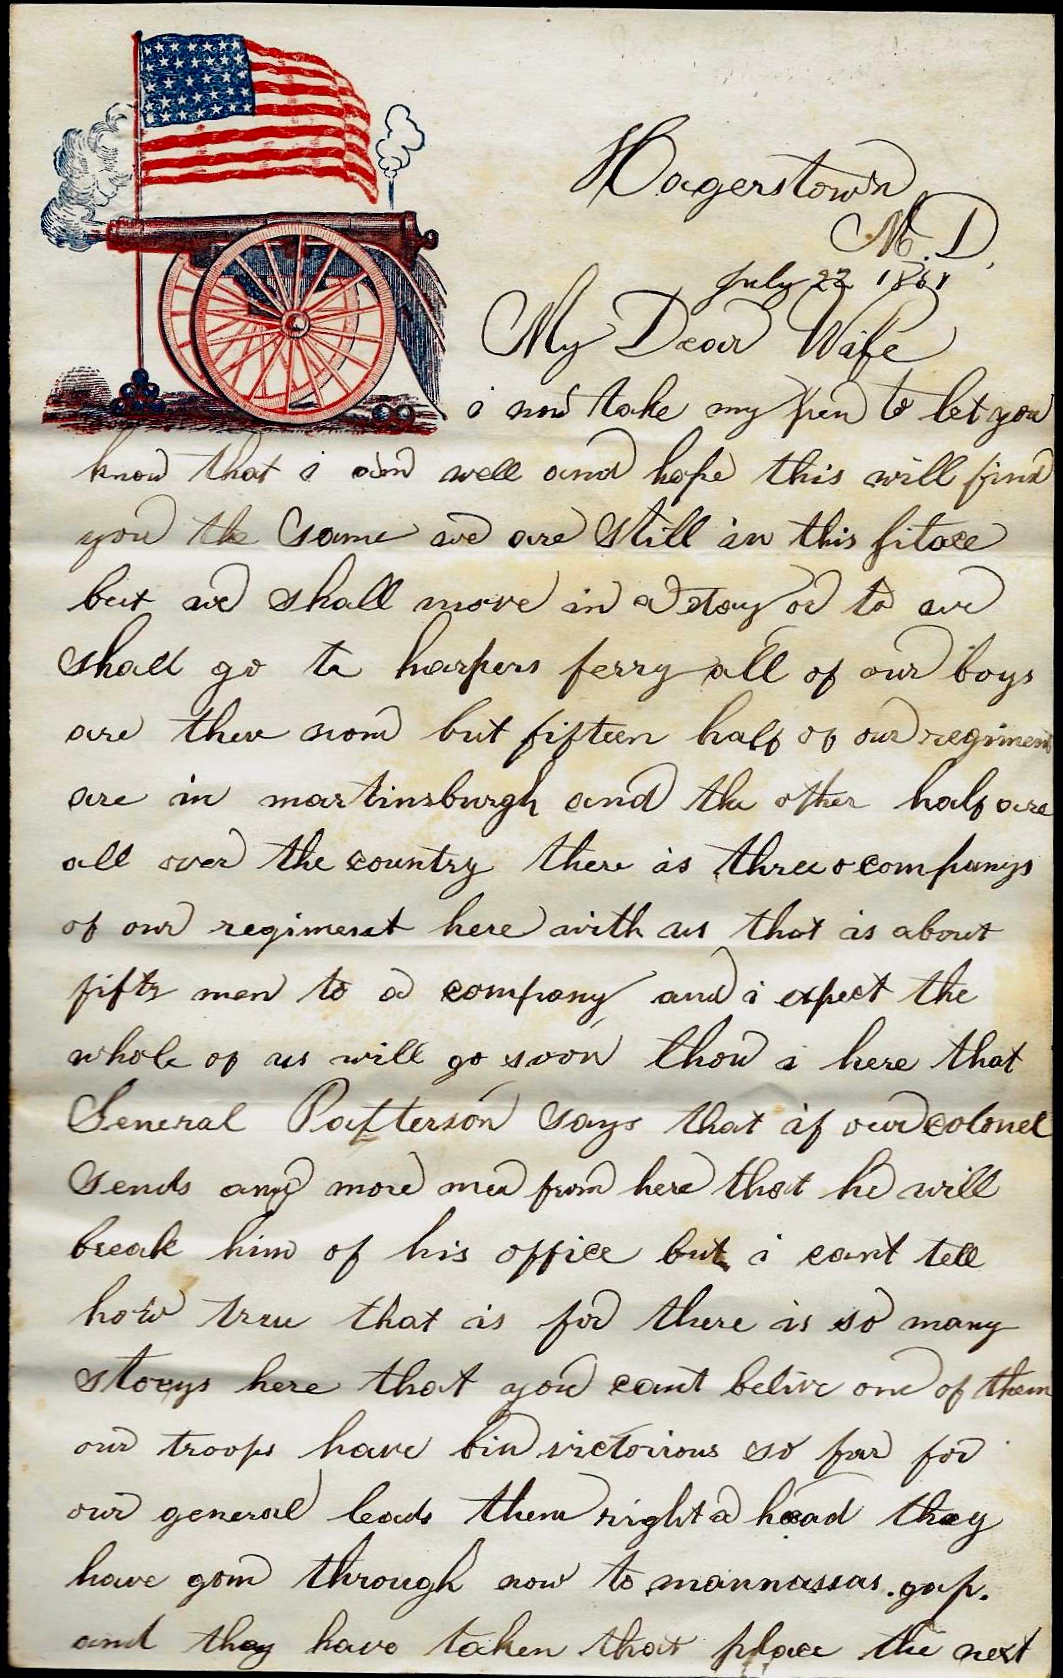 Hagerstown
M. D,
july 22 1861
My Dear Wife
i now take my pen to let you
know that i am well and hope this will find
you the same we are still in this place
but we shall move in a day or to we
shall go to harpers ferry all of our boys
are there now but fifteen half of our regiment
are in martinsburgh and the other half are
all over the country there is three companys
of our regiment here with us that is about
fifty men to a company and i expect the
whole of us will go soon tho i here that
General Patterson says that if our colonel
sends any more men from here that he will
break him of his office but i cant tell
how true that is for there is so many
storys here that you cant belive one of them
our troops have bin victorious so far for
our general leads them right a head they
have gone through now to mannassas.gap.
and they have taken that place the next